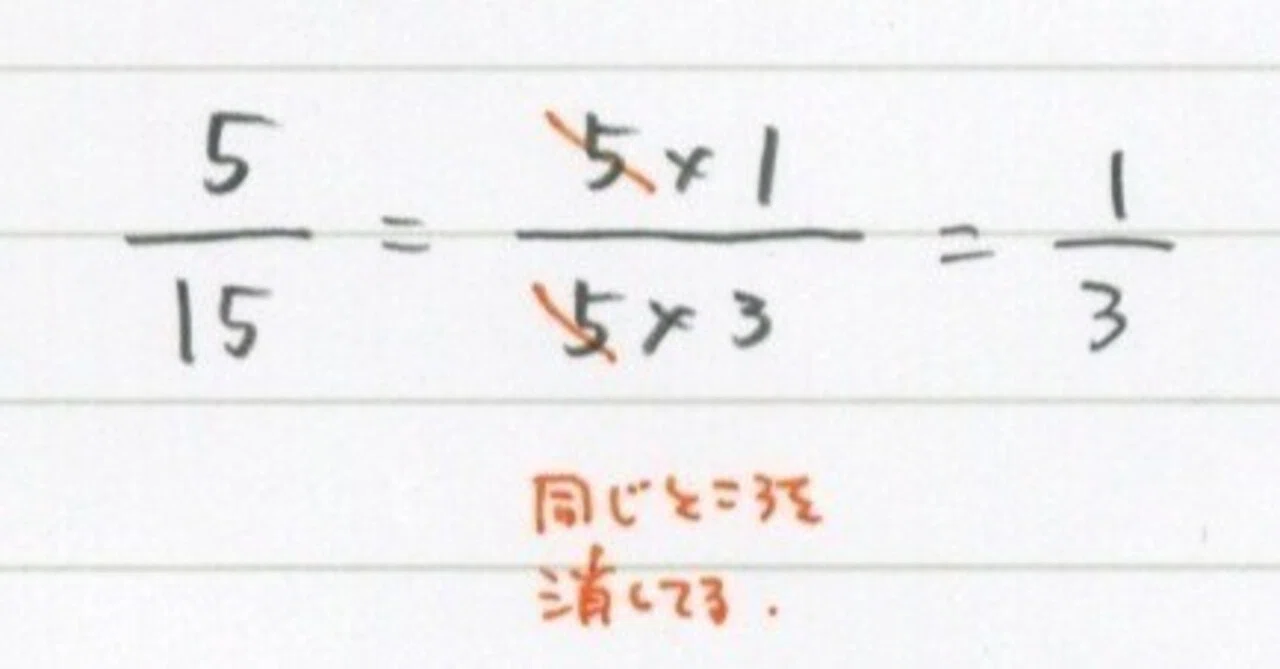 5/15 = 5×1/5×3 = 1/3
同じところを
消してる.